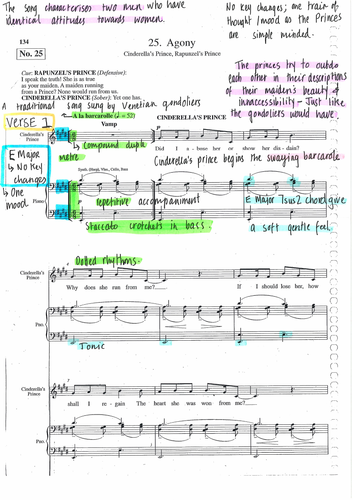 The song characterises two men who have
identical attitudes towards women.
No key changes; one train of
thought / mood as the Princes
are simple minded.
134
No. 25
25. Agony
Cinderella's Prince, Rapunzel's Prince
Cue: RAPUNZEL'S PRINCE (Defensive):
I speak the truth! She is as true
as your maiden. A maiden running
from a Prince? None would run from us.
CINDERELLA'S PRINCE (Sober): Yet one has.
The princes try to outdo
each other in their descriptions
of their maiden's beauty &
innaccessibility - Just like
the gondoliers would have.
A traditional song sung by Venetian gondoliers
VERSE 1
A la barcarolle (♩. = 52)
Vamp
CINDERELLA'S PRINCE
Cinderella's
Prince
↳ Compound duple
metre
Did I a - buse her or show her dis - dain?
Cinderella's prince begins the swaying barcarole
E Major
↳ No key
changes
↳ One
mood
Synth. (Harp), Vlns., Cello, Bass
Piano
repetitive accompaniment
Staccato crotchets in bass.
E Major 7sus2 chord give
a soft gentle feel
Dotted rhythms.
Cinderella's
Prince
Why does she run from me?
If I should lose her, how
Pno.
Tonic
Cinderella's
Prince
shall I re - gain The heart she was won from me?
Pno.